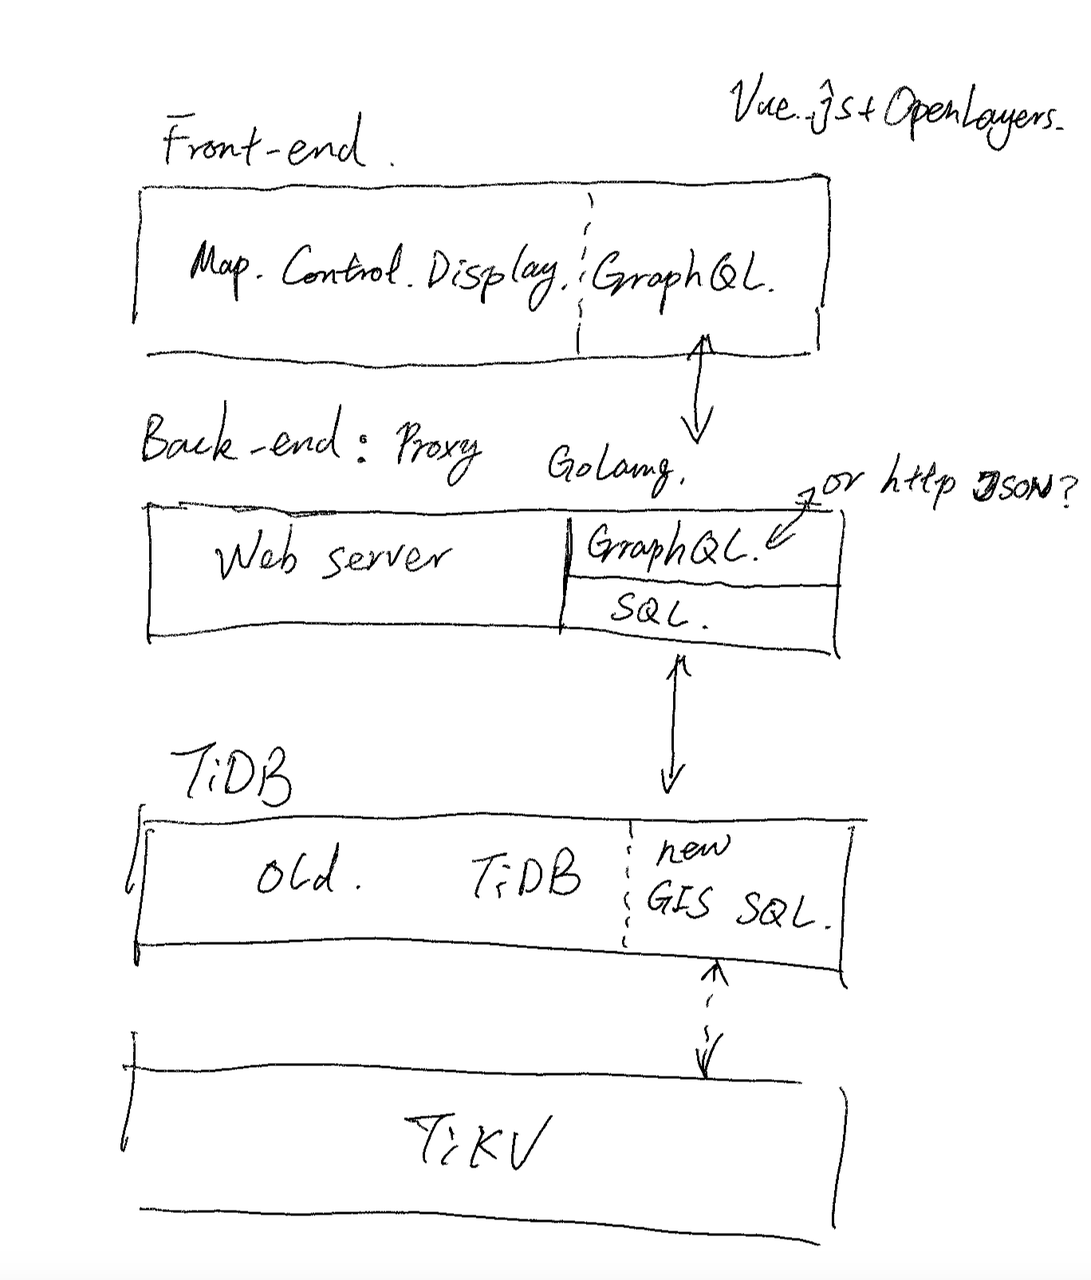 Vue.js + OpenLayers.
Front-end.
Map. Control. Display. GraphQL.
Back-end: Proxy Golang.
or http JSON?
Web server GraphQL.
SQL.
TiDB
old. TiDB new
GIS SQL.
TiKV